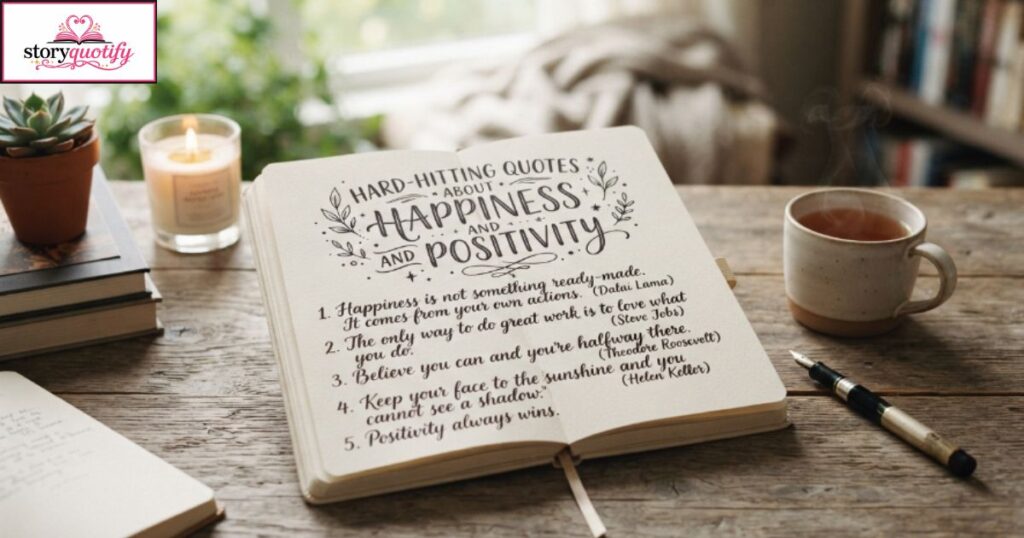 storyquotify
HARD-HITTING QUOTES
ABOUT
HAPPINESS
AND
AND POSITIVITY
1. Happiness is not something ready-made.
It comes from your own actions. (Dalai Lama)
2. The only way to do great work is to love what
you do. (Steve Jobs)
3. Believe you can and you're halfway there.
(Theodore Roosevelt)
4. Keep your face to the sunshine and you
cannot see a shadow." (Helen Keller)
5. Positivity always wins.